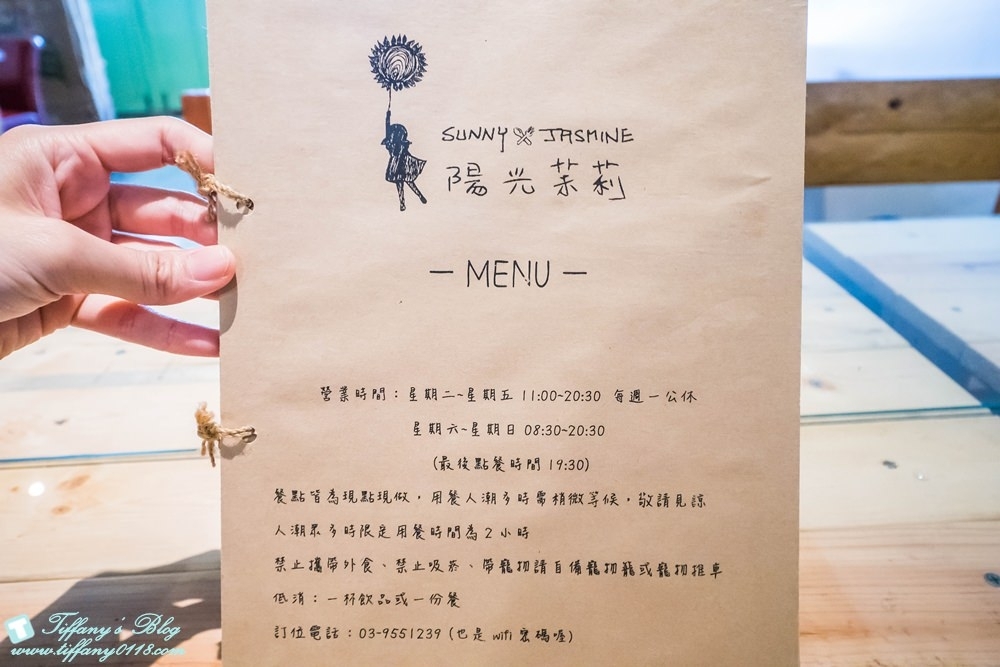 SUNNY JASMINE
陽光茉莉
— MENU —
營業時間：星期二~星期五 11:00~20:30 每週一公休
星期六~星期日 08:30~20:30
(最後點餐時間 19:30)
餐點皆為現點現做，用餐人潮多時需稍微等候，敬請見諒
人潮眾多時限定用餐時間為2小時
禁止攜帶外食、禁止吸菸、帶寵物請自備寵物籠或寵物推車
低消：一杯飲品或一份餐
訂位電話：03-9551239 (也是 wifi 密碼喔)
Tiffany's Blog
www.tiffany0118.com